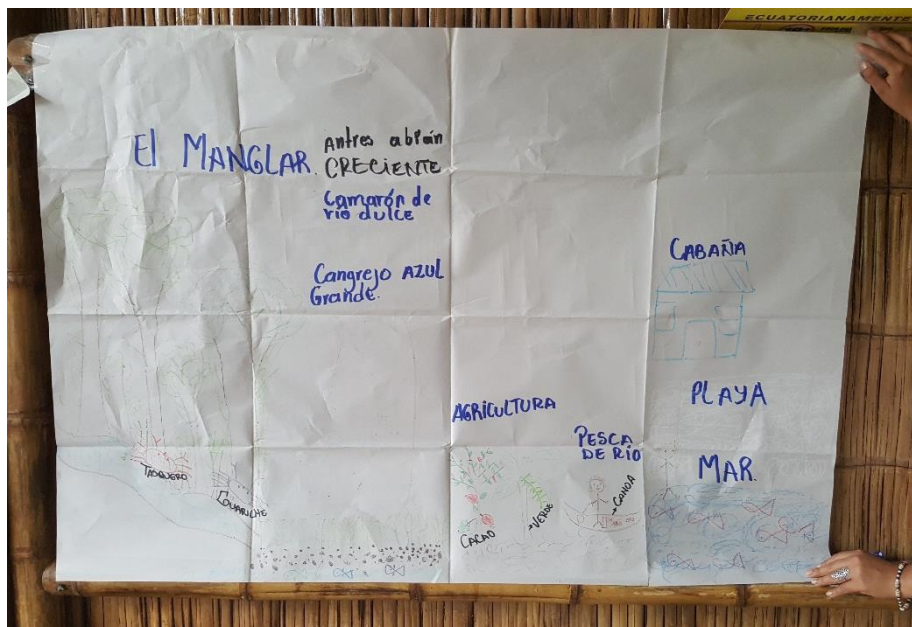 ECUATORIANAMENTE
El MANGLAR.
Antres abrán
CRECIENTE
Camarón de
río dulce
Cangrejo AZUL
Grande.
CABAÑA
AGRICULTURA
PLAYA
PESCA
DE RÍO
MAR.
TASQUERO
GUARICHE
CACAO
VERDE
CANOA